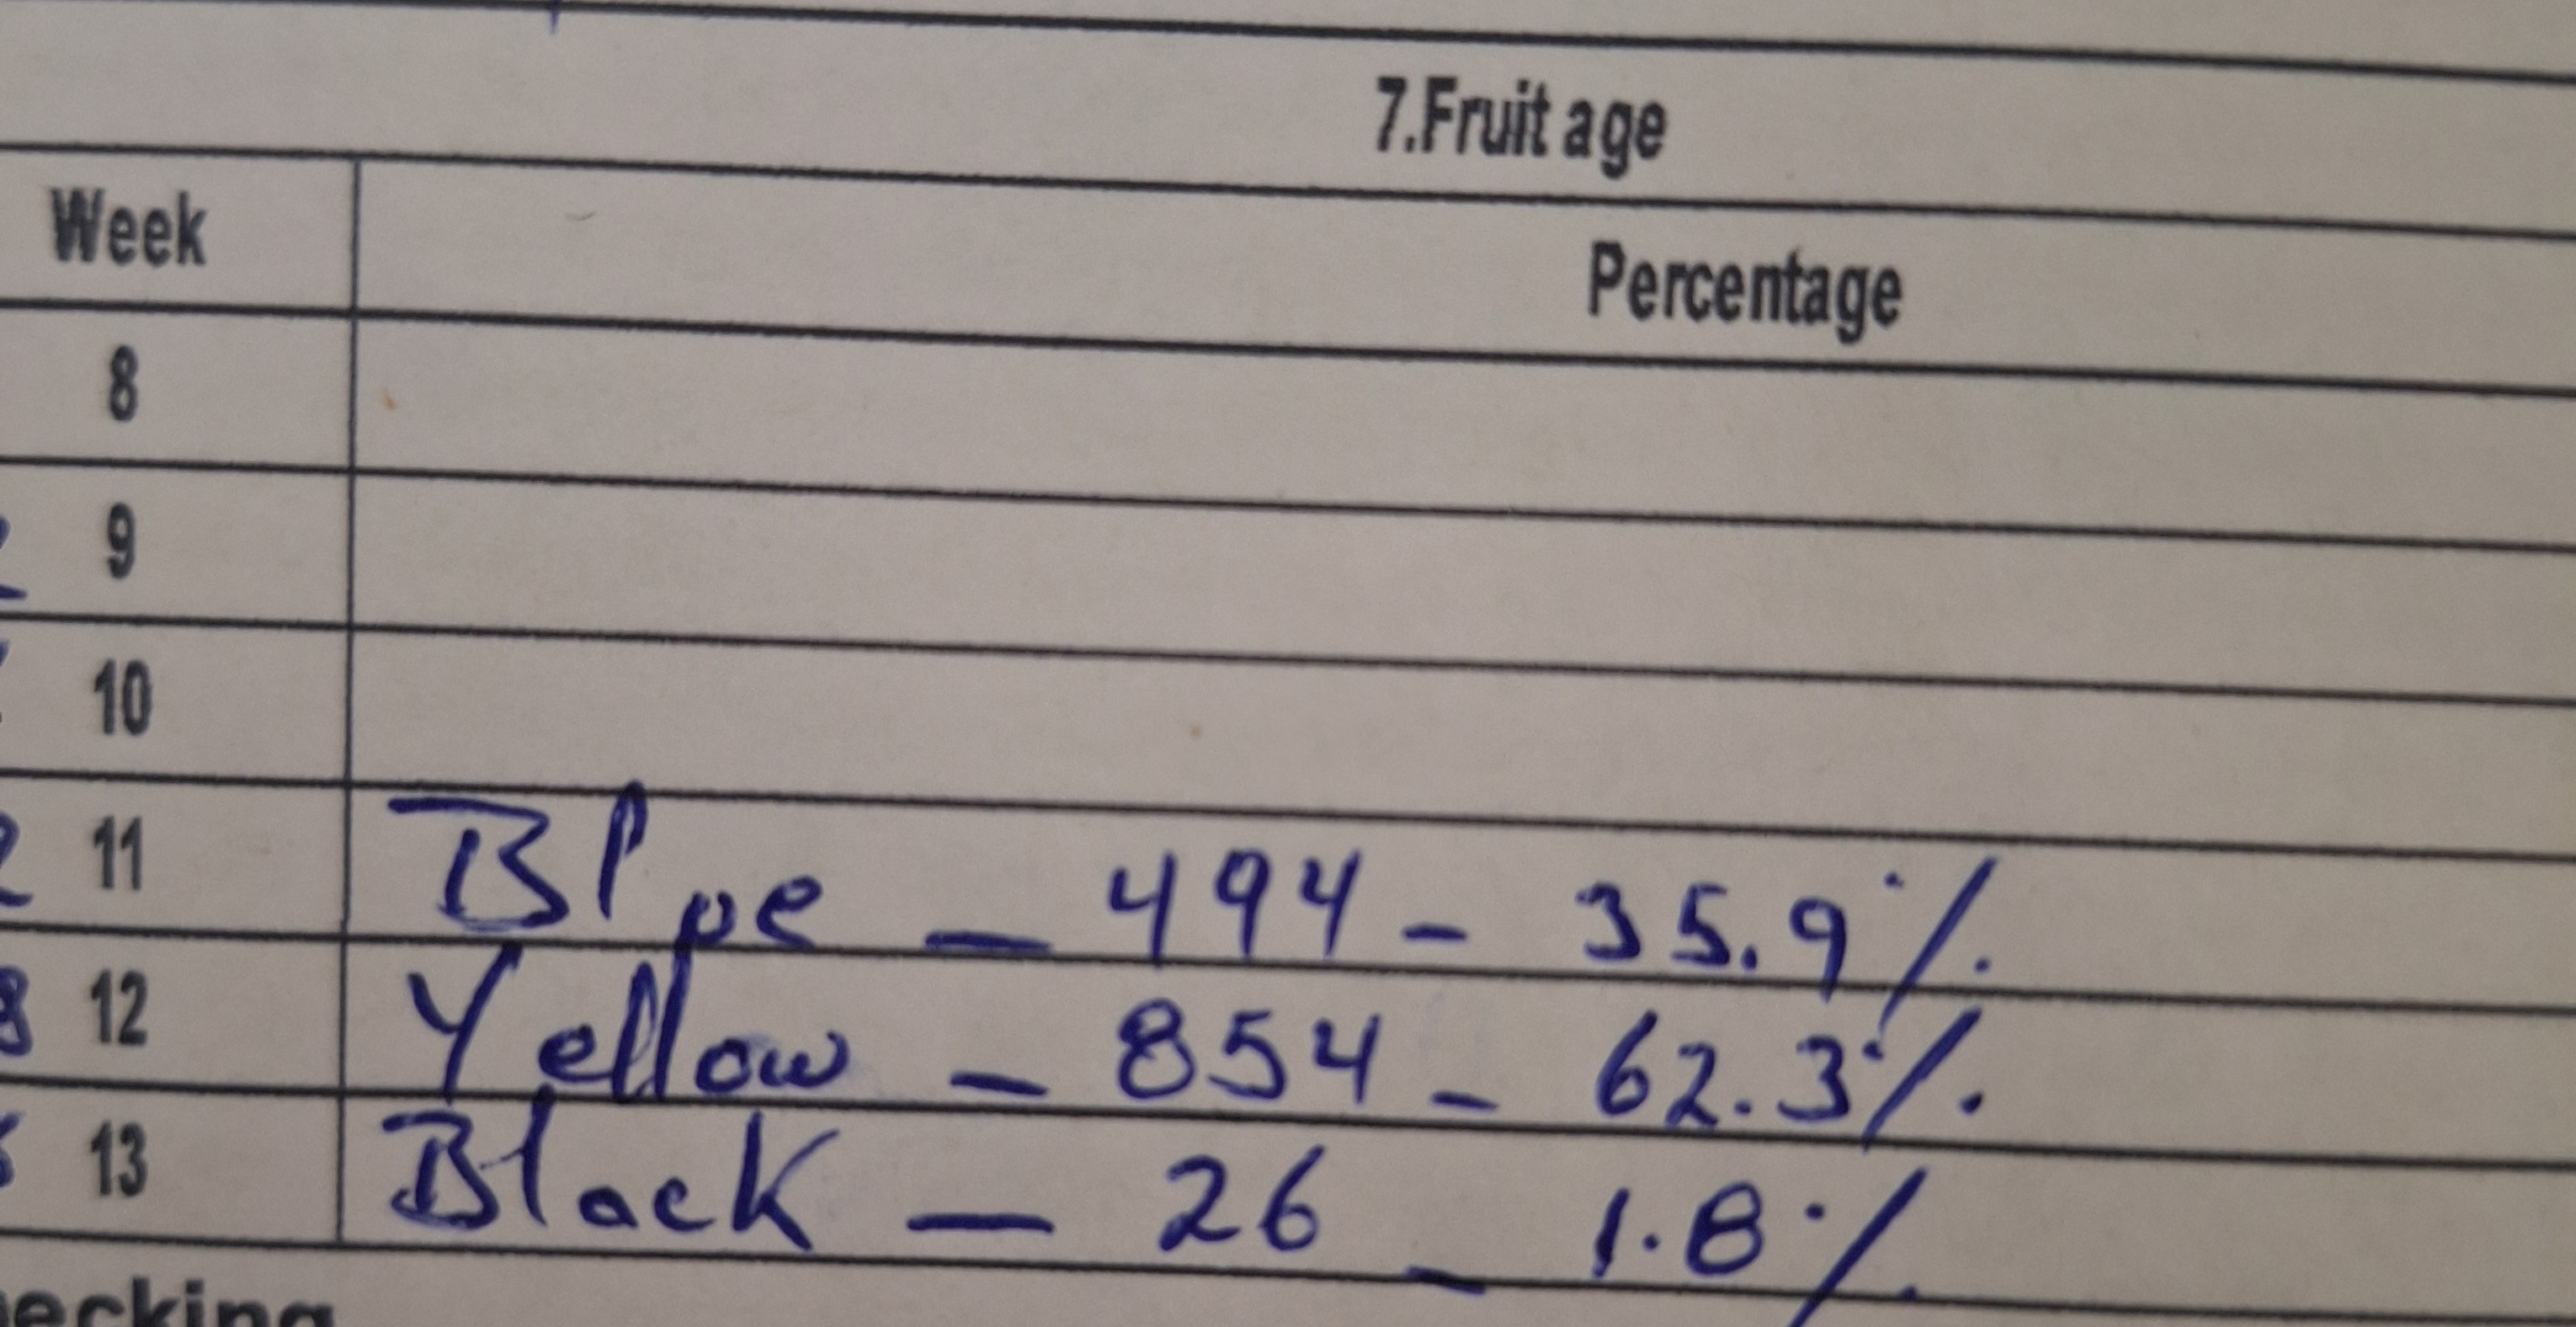 7.Fruit age
Week Percentage
8
9
10
11 Blue — 494 - 35.9%
12 Yellow — 854 - 62.3%
13 Black — 26 - 1.8%